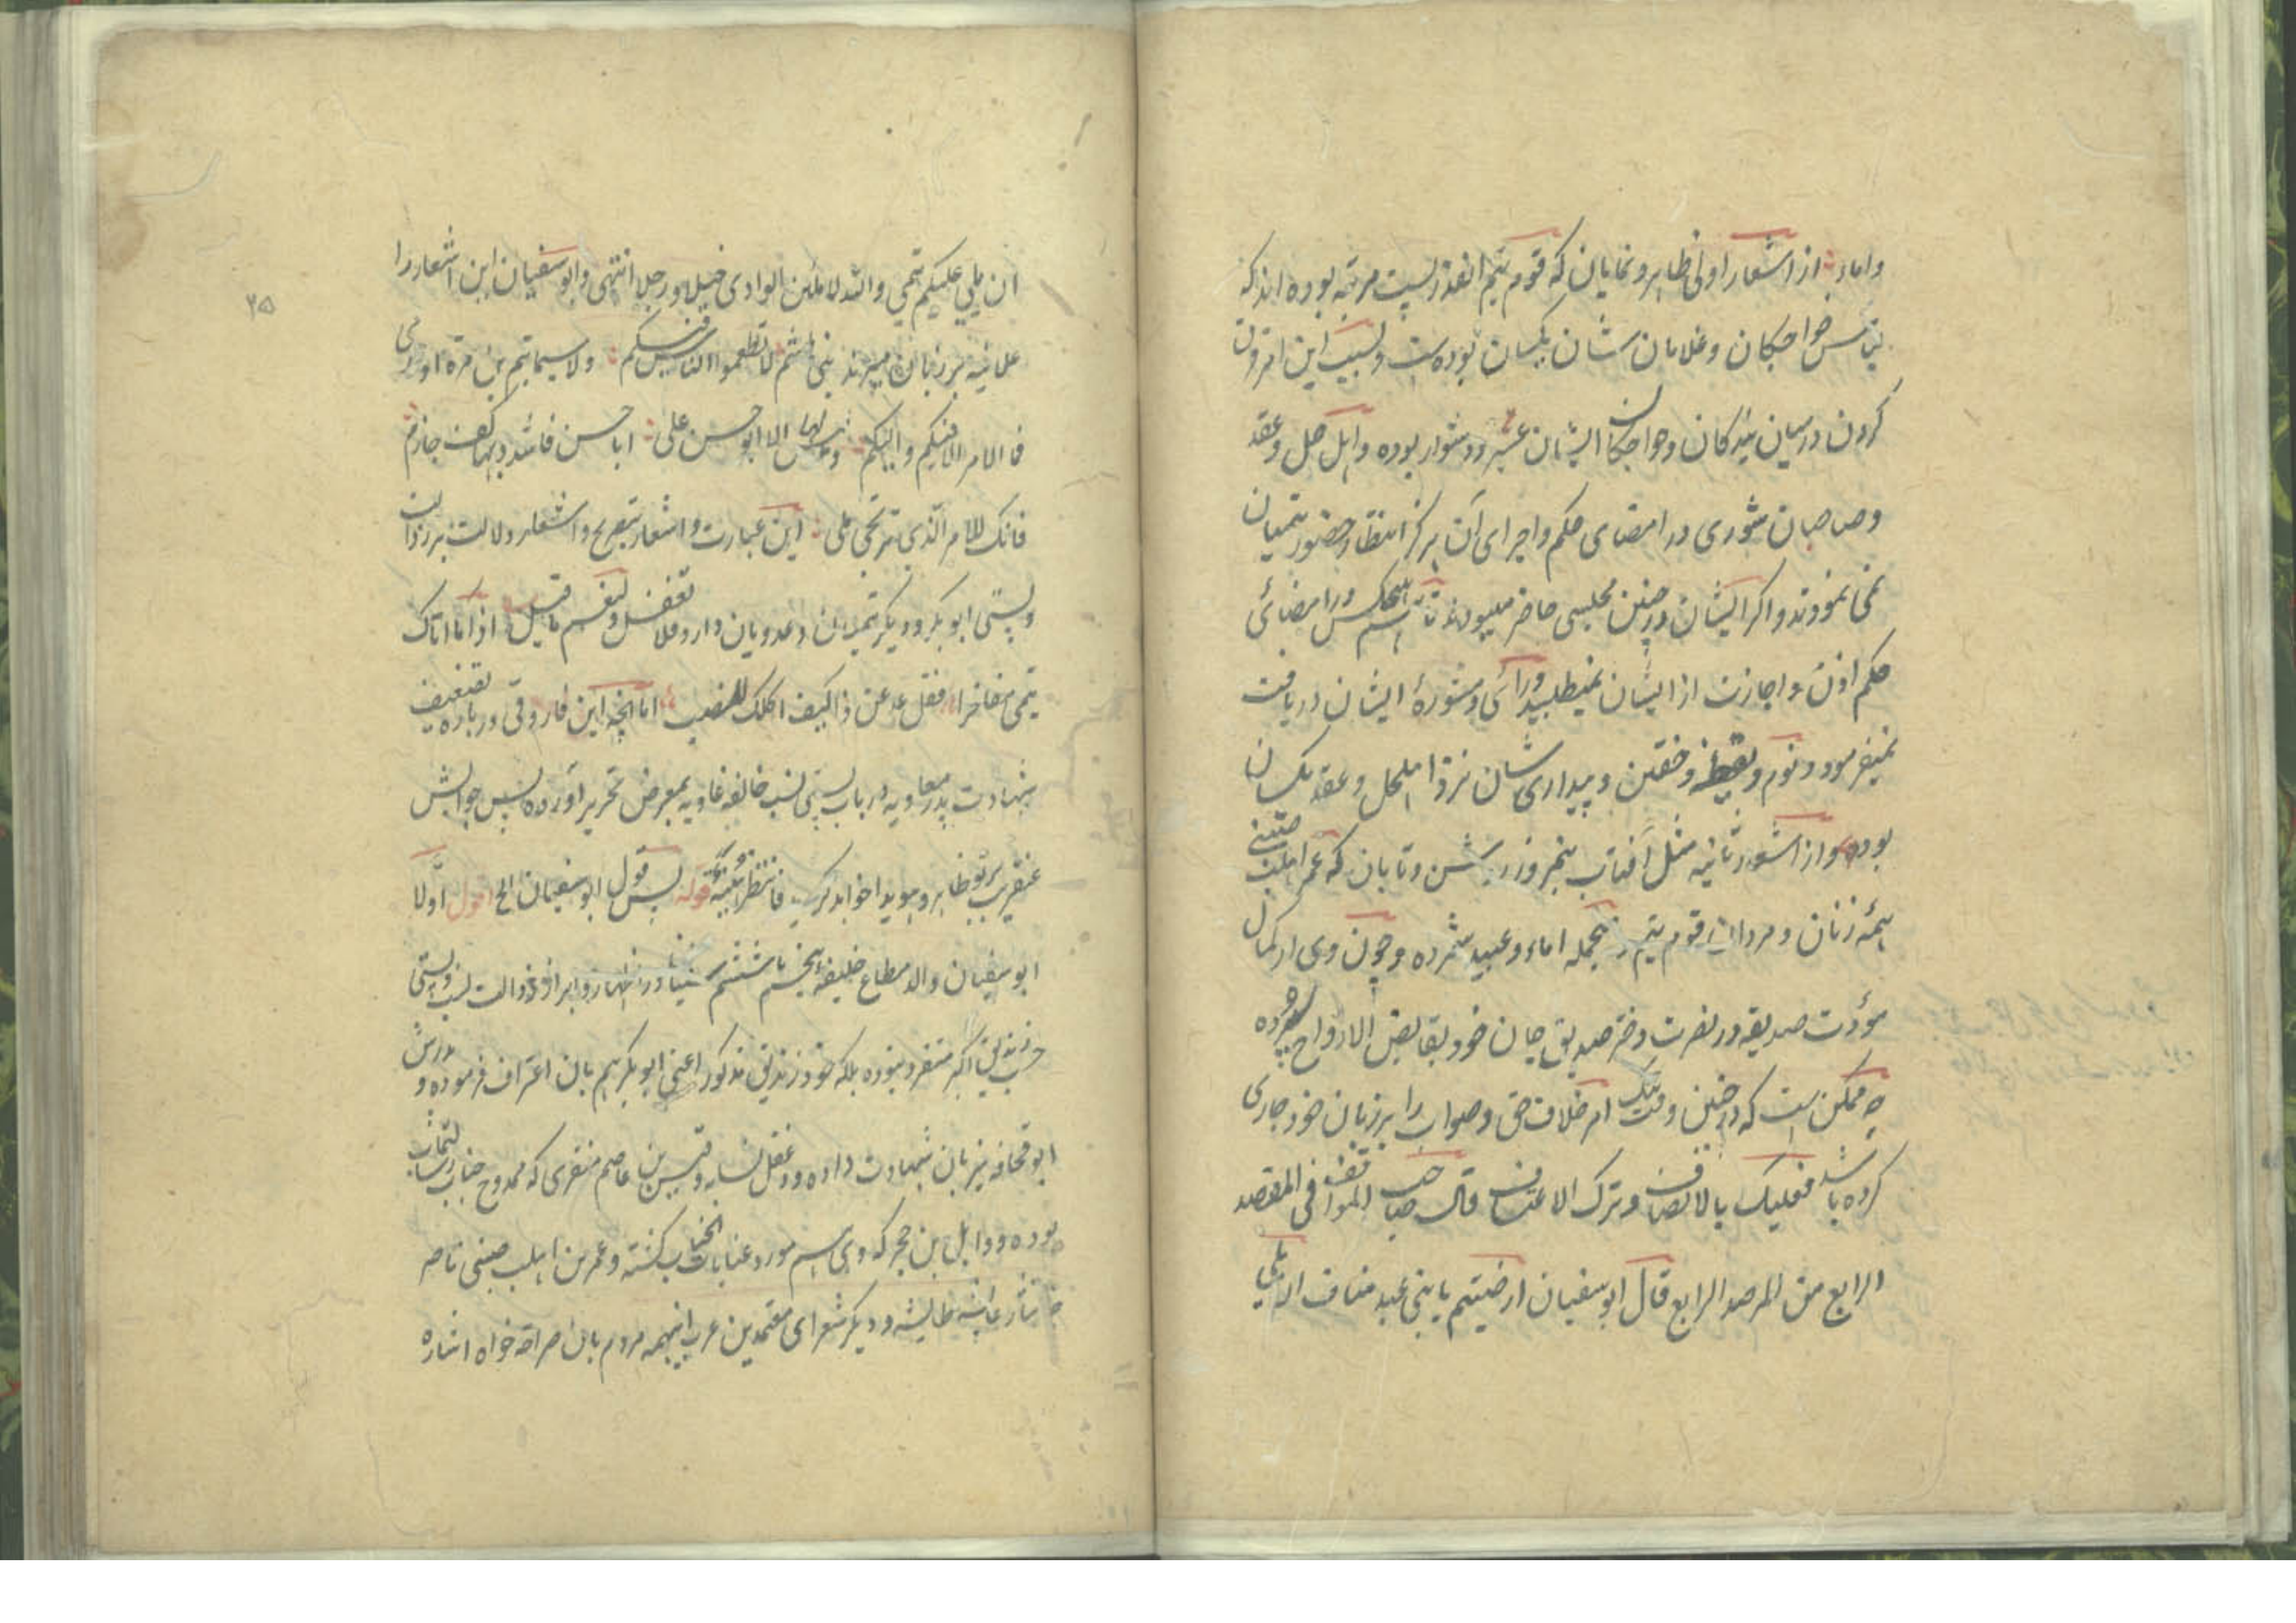 واماء از اشعار اولی ظاهر و نمایان که قوم تیم انقدر پست مرتبه بوده اند که
خواجکان و غلامان شان یکسان بوده است و بسبب این امر فرق
کردن درمیان بندکان و خواجکان ایشان عسیر و دشوار بوده و اهل حل و عقد
و صاحبان شوری در امضای حکم و اجرای آن هرکز انتظار حضور تیمیان
نمی نمودند و اکر ایشان در چنین مجلسی حاضر میبودند تا هم هیچکس در امضائی
حکم اذن و اجازت از ایشان نمیطلبید و رائی و مشورهٔ ایشان دریافت
نمیفرمود و نوم و یقظه و خفتن و بیداری شان نزد اهل حل و عقد یکسان
بوده و از اشعار ثانیه مثل آفتاب نیمروز روشن و تابان که عمر اهلب ضبنی
همه زنان و مردان قوم تیم را بجمله اماء و عبید شمرده و چون وی از کمال
مؤدت صدیقه در نصرت دختر صدیق جان خود بقابض الارواح سپرده
چه ممکن است که در چنین وقت امر خلاف حق و صواب را بر زبان خود جاری
کرده باشد فعلیک بالانصاف و ترک الاعتساف قال صاحب المواقف فی المقصد
الرابع من المرصد الرابع قال ابوسفیان ارضیتم یا بنی عبد مناف ان یلی
۲۵
ان یلی علیکم تیمی والله لاملئن الوادی خیلا و رجلا انتهی و ابوسفیان این اشعار را
علانیه بر زبان میراند بنی هاشم لا تطمعوا الناس فیکم ولا سیما تیم بن مرة او عدی
فما الامر الا فیکم والیکم ولیس لها الا ابو حسن علی ابا حسن فاشدد بها کف حازم
فانک للامر الذی ترتجی ملی این عبارت و اشعار بتصریح و اشعار دلالت بر رذالت
و پستی ابوبکر و دیکر تیمیان و عدویان دارد فلا تغفل و لنعم ما قیل اذا ما اتاک
تیمی مفاخرا فقل عد عن ذا کیف اکلک للضب اما آنچه این فاروقی درباره تضعیف
شهادت پدر معاویه در باب پستی نسب خالفه غاویه بمعرض تحریر آورده پس جوابش
عنقریب بر تو ظاهر و هویدا خواهد کردید فانتظر قوله پس قول ابوسفیان الخ اقول اولا
ابوسفیان والد مطاع خلیفه پنجم یا ششم سنیان در اظهار و ابراز رذالت نسب و پستی
حسب زندیق اکبر منفرد نبوده بلکه خود زندیق مذکور اعنی ابوبکر هم بان اعتراف فرموده و پدرش
ابوقحافه نیز بان شهادت داده و دغفل نسابه و قیس بن عاصم منقری که ممدوح جناب رسالتماب
بوده و وائل بن حجر که وی هم مورد عنایات انجناب کشته و عمر بن اهلب ضبنی ناصر
عائشه طائشه و دیکر شعرای متقدمین عرب اینهمه مردم بان صراحة خواه اشارة